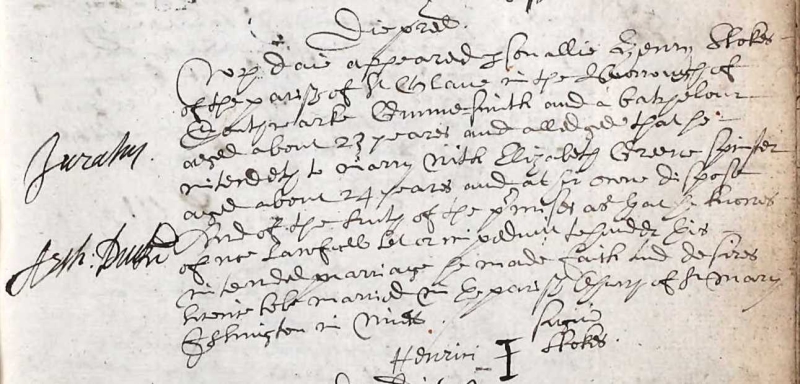 Die pred.
Wch daie appeared psonallie Henry Stokes
of the parish of St Olave in the Burrough of
Southwarke Gunnesmith and a batchelour
aged about 23 yeares and alledged that he
intendeth to marry with Elizabeth Greene spinster
aged about 24 yeares and at her owne dispose
And of the truth of the pmisses as that he knowes
of noe lawfull let or impedimt to hinder his
intended marriage he made faith and desires
licence to be married in the parish Church of St Mary
Islington in Midd.
Juratus.
Henrici I Stokes.
signu